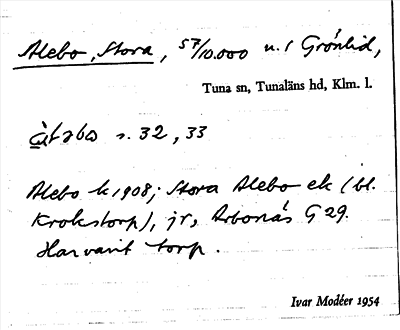 Alebo, Stora, 57/10.000 n. i Grönlid,
Tuna sn, Tunaläns hd, Klm. l.
s. 32, 33
Alebo k 1908; Stora Alebo ek (bl.
Krokstorp), jr, Arbonäs G 29.
Har varit torp.
Ivar Modéer 1954